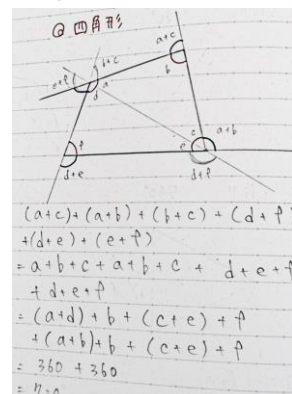 ②四角形
a+c
b+c
b
a
e+f
d
c
a+b
f
e
d+e
d+f
(a+c)+(a+b)+(b+c)+(d+f)
+(d+e)+(e+f)
=a+b+c+a+b+c+d+e+f
+d+e+f
=(a+d)+b+(c+e)+f
+(a+b)+b+(c+e)+f
=360+360